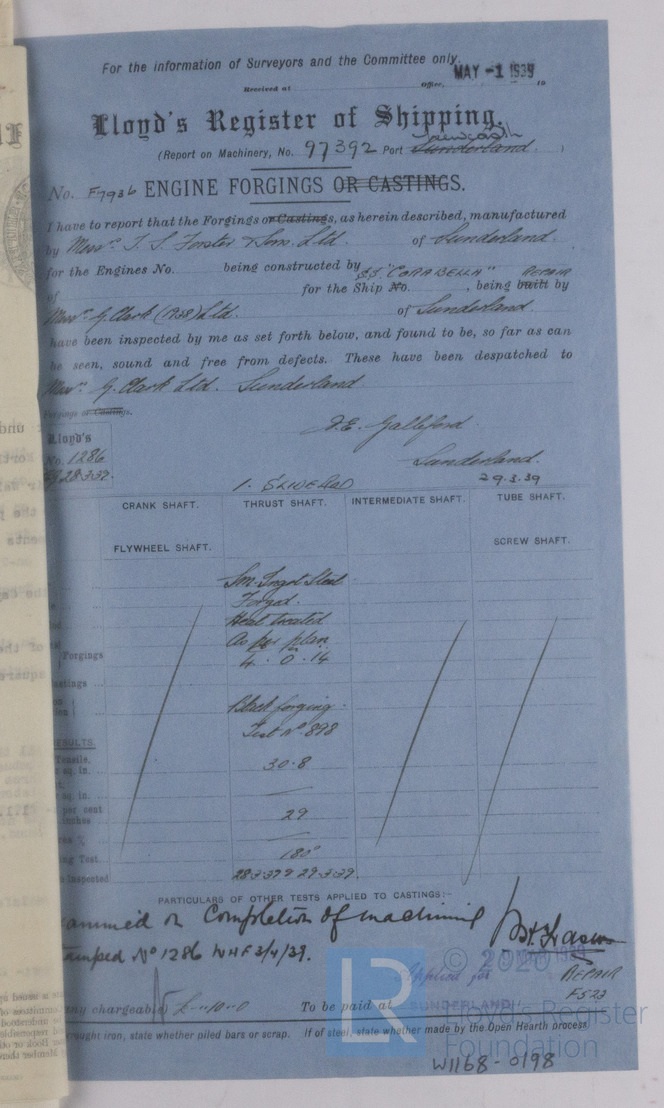 For the information of Surveyors and the Committee only.
MAY -1 1939
Received at Office, 19
Lloyd's Register of Shipping.
(Report on Machinery, No. 97392 Port Sunderland. )
No. F7936 ENGINE FORGINGS OR CASTINGS.
I have to report that the Forgings or Castings, as herein described, manufactured
by Messrs. T. S. Forster & Sons Ltd. of Sunderland.
for the Engines No. being constructed by S.S. "CORABELLA" REPAIR
of for the Ship No. , being built by
Messrs. G. Clark (1938) Ltd. of Sunderland.
have been inspected by me as set forth below, and found to be, so far as can
be seen, sound and free from defects. These have been despatched to
Messrs. G. Clark Ltd. Sunderland
Forgings or Castings.
J. E. Galliford
Lloyd's
No. 1286
28.3.39.
Sunderland.
29.3.39
CRANK SHAFT. THRUST SHAFT. INTERMEDIATE SHAFT. TUBE SHAFT.
FLYWHEEL SHAFT. SCREW SHAFT.
Sm. Ingot Steel
Forged.
Heat treated
As per plan
Forgings 4. 0. 14
Castings
Black forging.
Test No 898
RESULTS.
Tensile. 30.8
sq. in.
sq. in.
per cent 29
inches
Test 180°
Inspected 28.3.39 & 29.3.39.
PARTICULARS OF OTHER TESTS APPLIED TO CASTINGS:-
on Completion of machining
No 1286 WHF 3/4/39.
© 2020
Applied for
REPAIR
F523
any chargeable) To be paid at SUNDERLAND
LR
Lloyd's Register
Foundation
wrought iron, state whether piled bars or scrap. If of steel, state whether made by the Open Hearth process
W1168-0198